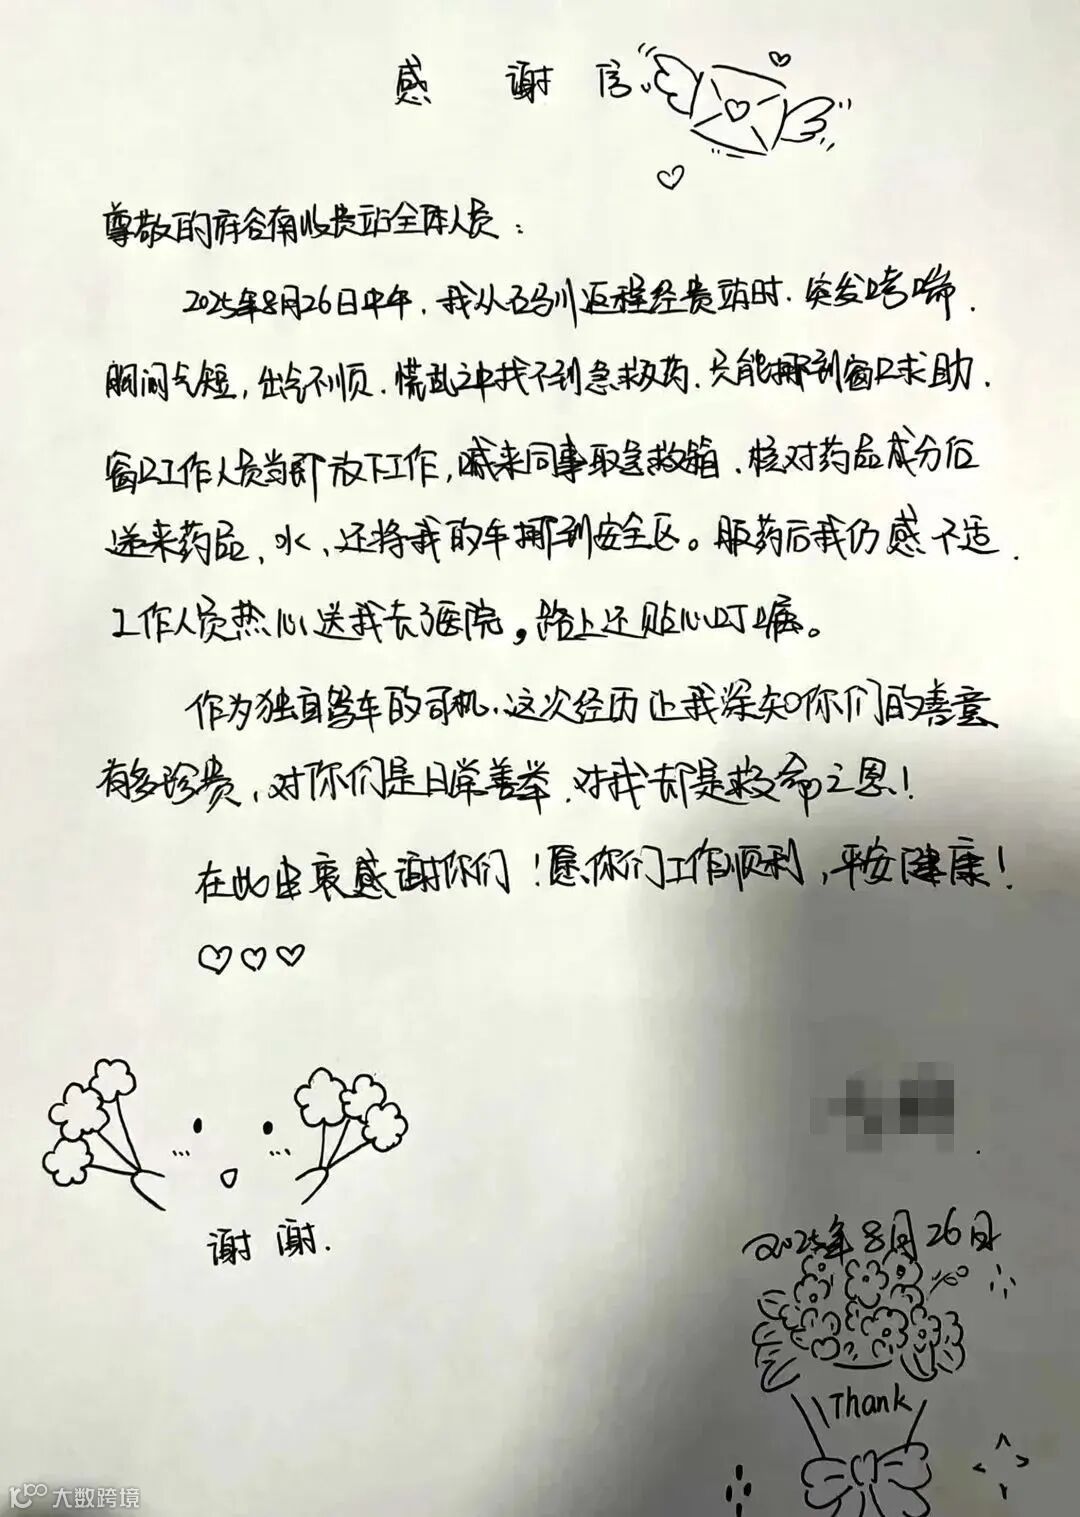 感谢信
尊敬的府谷南收费站全体人员：
2025年8月26日中午，我从石马川返程经贵站时，突发哮喘，
胸闷气短，出气不顺，慌乱之中找不到急救药，只能挪到窗口求助，
窗口工作人员当即放下工作，喊来同事取急救箱，核对药品成分后
送来药品、水，还将我的车挪到安全区。服药后我仍感不适，
工作人员热心送我去了医院，路上还贴心叮嘱。
作为独自驾车的司机，这次经历让我深知你们的善意
有多珍贵，对你们是日常善举，对我却是救命之恩！
在此由衷感谢你们！愿你们工作顺利，平安健康！
谢谢.
2025年8月26日
Thank
大数跨境